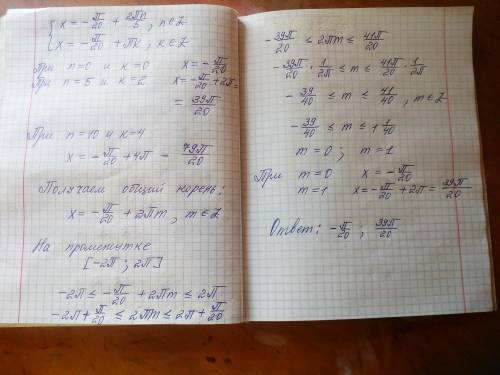 x = -π/20 + 2πn/5, n∈Z
x = -π/20 + πk, k∈Z
При n=0 и k=0 x = -π/20
При n=5 и k=2 x = -π/20 + 2π =
= 39π/20
При n=10 и k=4
x = -π/20 + 4π - 79π/20
Получаем общий корень:
x = -π/20 + 2πm, m∈Z
На промежутке
[-2π; 2π]
-2π ≤ -π/20 + 2πm ≤ 2π
-2π + π/20 ≤ 2πm ≤ 2π + π/20
-39π/20 ≤ 2πm ≤ 41π/20
-39π/20 · 1/2π ≤ m ≤ 41π/20 · 1/2π
-39/40 ≤ m ≤ 41/40, m∈Z
-39/40 ≤ m ≤ 1 1/40
m=0; m=1
При m=0 x = -π/20
m=1 x = -π/20 + 2π = 39π/20
Ответ: -π/20; 39π/20